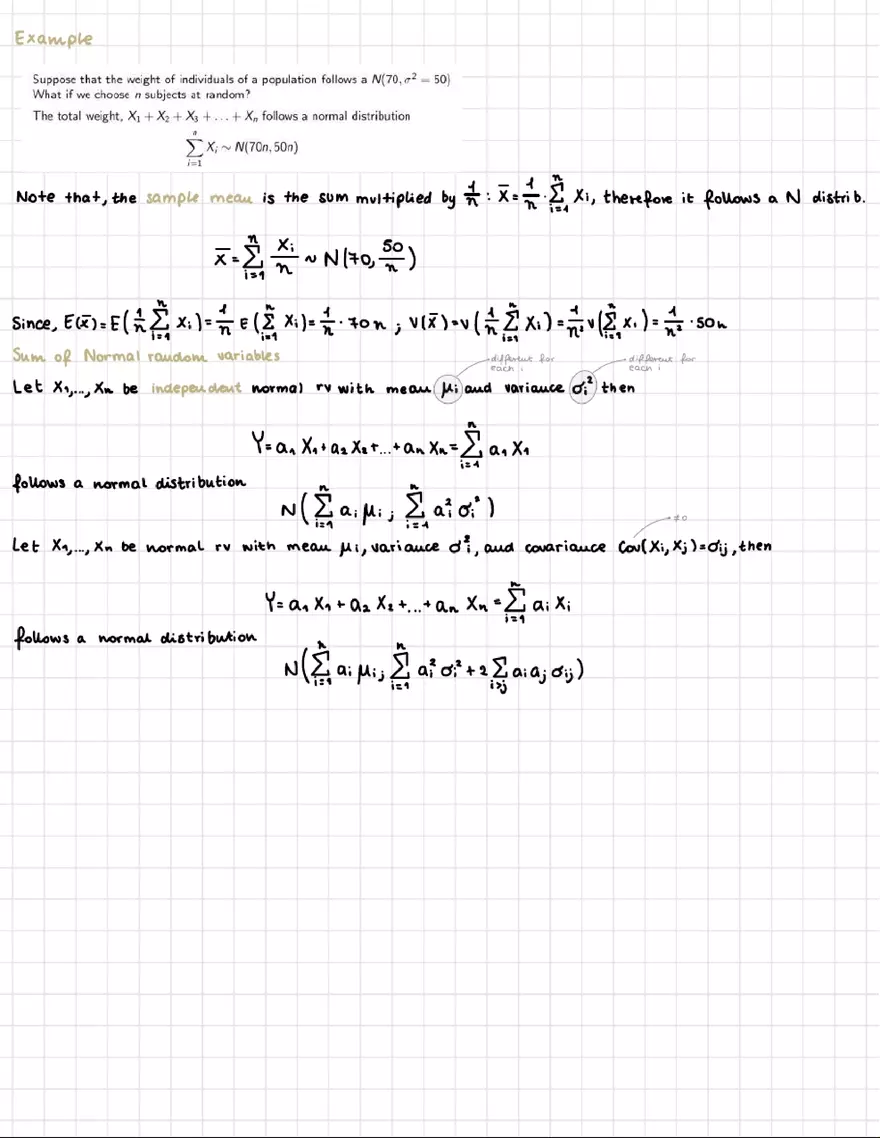 Example
Suppose that the weight of individuals of a population follows a N(70, σ² = 50)
What if we choose n subjects at random?
The total weight, X₁ + X₂ + X₃ + ... + Xₙ follows a normal distribution
∑ᵢ₌₁ⁿ Xᵢ ~ N(70n, 50n)
Note that, the sample mean is the sum multiplied by 1/n : X̄ = 1/n · ∑ᵢ₌₁ⁿ Xᵢ, therefore it follows a N distrib.
X̄ = ∑ᵢ₌₁ⁿ Xᵢ/n ~ N(70, 50/n)
Since, E(x̄) = E(1/n ∑ᵢ₌₁ⁿ Xᵢ) = 1/n E(∑ᵢ₌₁ⁿ Xᵢ) = 1/n · 70n ; V(x̄) = V(1/n ∑ᵢ₌₁ⁿ Xᵢ) = 1/n² V(∑ᵢ₌₁ⁿ Xᵢ) = 1/n² · 50n
Sum of Normal random variables
different for each i
different for each i
Let X₁,..., Xₙ be independent normal rv with mean μᵢ and variance σᵢ² then
Y = a₁ X₁ + a₂ X₂ + ... + aₙ Xₙ = ∑ᵢ₌₁ⁿ a₁ X₁
follows a normal distribution
N(∑ᵢ₌₁ⁿ aᵢ μᵢ ; ∑ᵢ₌₁ⁿ aᵢ² σᵢ²)
≠0
Let X₁,..., Xₙ be normal rv with mean μᵢ, variance σᵢ², and covariance Cov(Xᵢ, Xⱼ) = σᵢⱼ, then
Y = a₁ X₁ + a₂ X₂ + ... + aₙ Xₙ = ∑ᵢ₌₁ⁿ aᵢ Xᵢ
follows a normal distribution
N(∑ᵢ₌₁ⁿ aᵢ μᵢ ; ∑ᵢ₌₁ⁿ aᵢ² σᵢ² + 2 ∑ᵢ>ⱼ aᵢ aⱼ σᵢⱼ)